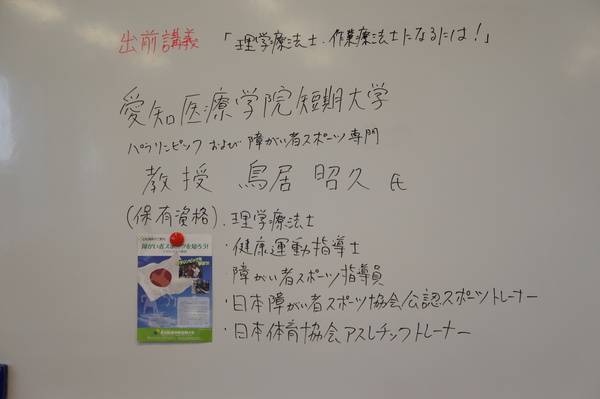 出前講義 「理学療法士、作業療法士になるには！」
愛知医療学院短期大学
パラリンピック および 障がい者スポーツ専門
教授 鳥居 昭久 氏
(保有資格)・理学療法士
・健康運動指導士
・障がい者スポーツ指導員
・日本障がい者スポーツ協会公認スポーツトレーナー
・日本体育協会アスレチックトレーナー
障がい者スポーツを知ろう!